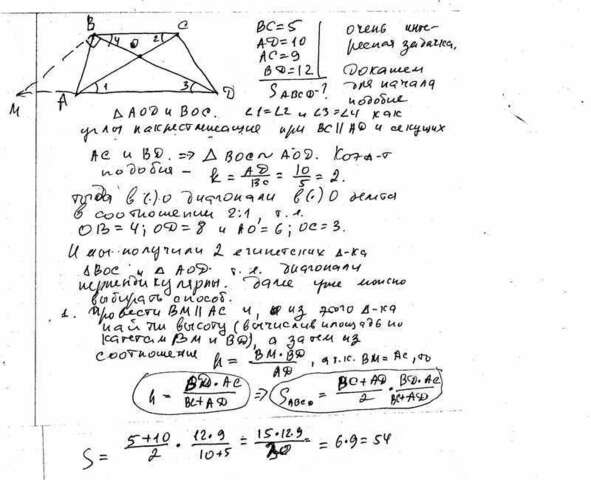 B C
4 2
O
M A 1 3 D
BC=5
AD=10
AC=9
BD=12
S ABCD-?
очень инте-
ресная задачка.
Докажем
для начала
подобие
Δ AOD и BOC. ∠1=∠2 и ∠3=∠4 как
углы накрестлежащие при BC∥AD и секущих
AC и BD. => Δ BOC ~ AOD. Коэф-т
подобия - k = AD/BC = 10/5 = 2.
тогда в (·) O диагонали в (·) O делятся
в соотношении 2:1, т.е.
OB=4; OD=8 и AO=6; OC=3.
И мы получили 2 египетских Δ-ка
ΔBOC и ΔAOD т.е. диагонали
перпендикулярны. Далее уже можно
выбирать способ.
1. Провести BM∥AC и, из этого Δ-ка
найти высоту (вычислив площадь по
катетам BM и BD), а затем из
соотношения h = BM·BD/AD, а т.к. BM=AC, то
h = BD·AC/BC+AD => S ABCD = BC+AD/2 · BD·AC/BC+AD
S = 5+10/2 · 12·9/10+5 = 15·12·9/ = 6·9=54